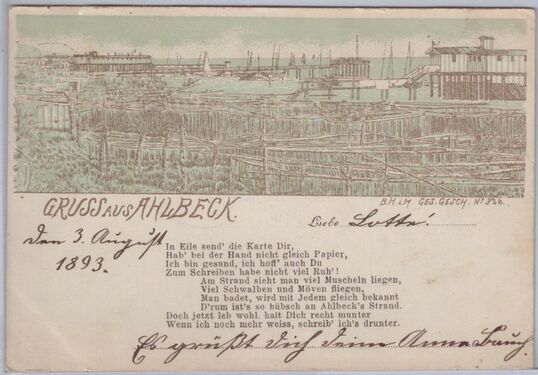 GRUSS AUS AHLBECK.
B.H. i.M. GES. GESCH. No 826.
Liebe Lotte!
Den 3. August
1893.
In Eile send' die Karte Dir,
Hab' bei der Hand nicht gleich Papier,
Ich bin gesund, ich hoff' auch Du
Zum Schreiben habe nicht viel Ruh'!
Am Strand sieht man viel Muscheln liegen,
Viel Schwalben und Möven fliegen,
Man badet, wird mit Jedem gleich bekannt
D'rum ist's so hübsch an Ahlbeck's Strand.
Doch jetzt leb wohl halt Dich recht munter
Wenn ich noch mehr weiss, schreib' ich's drunter.
Es grüßt Dich Deine Anna Bauch.